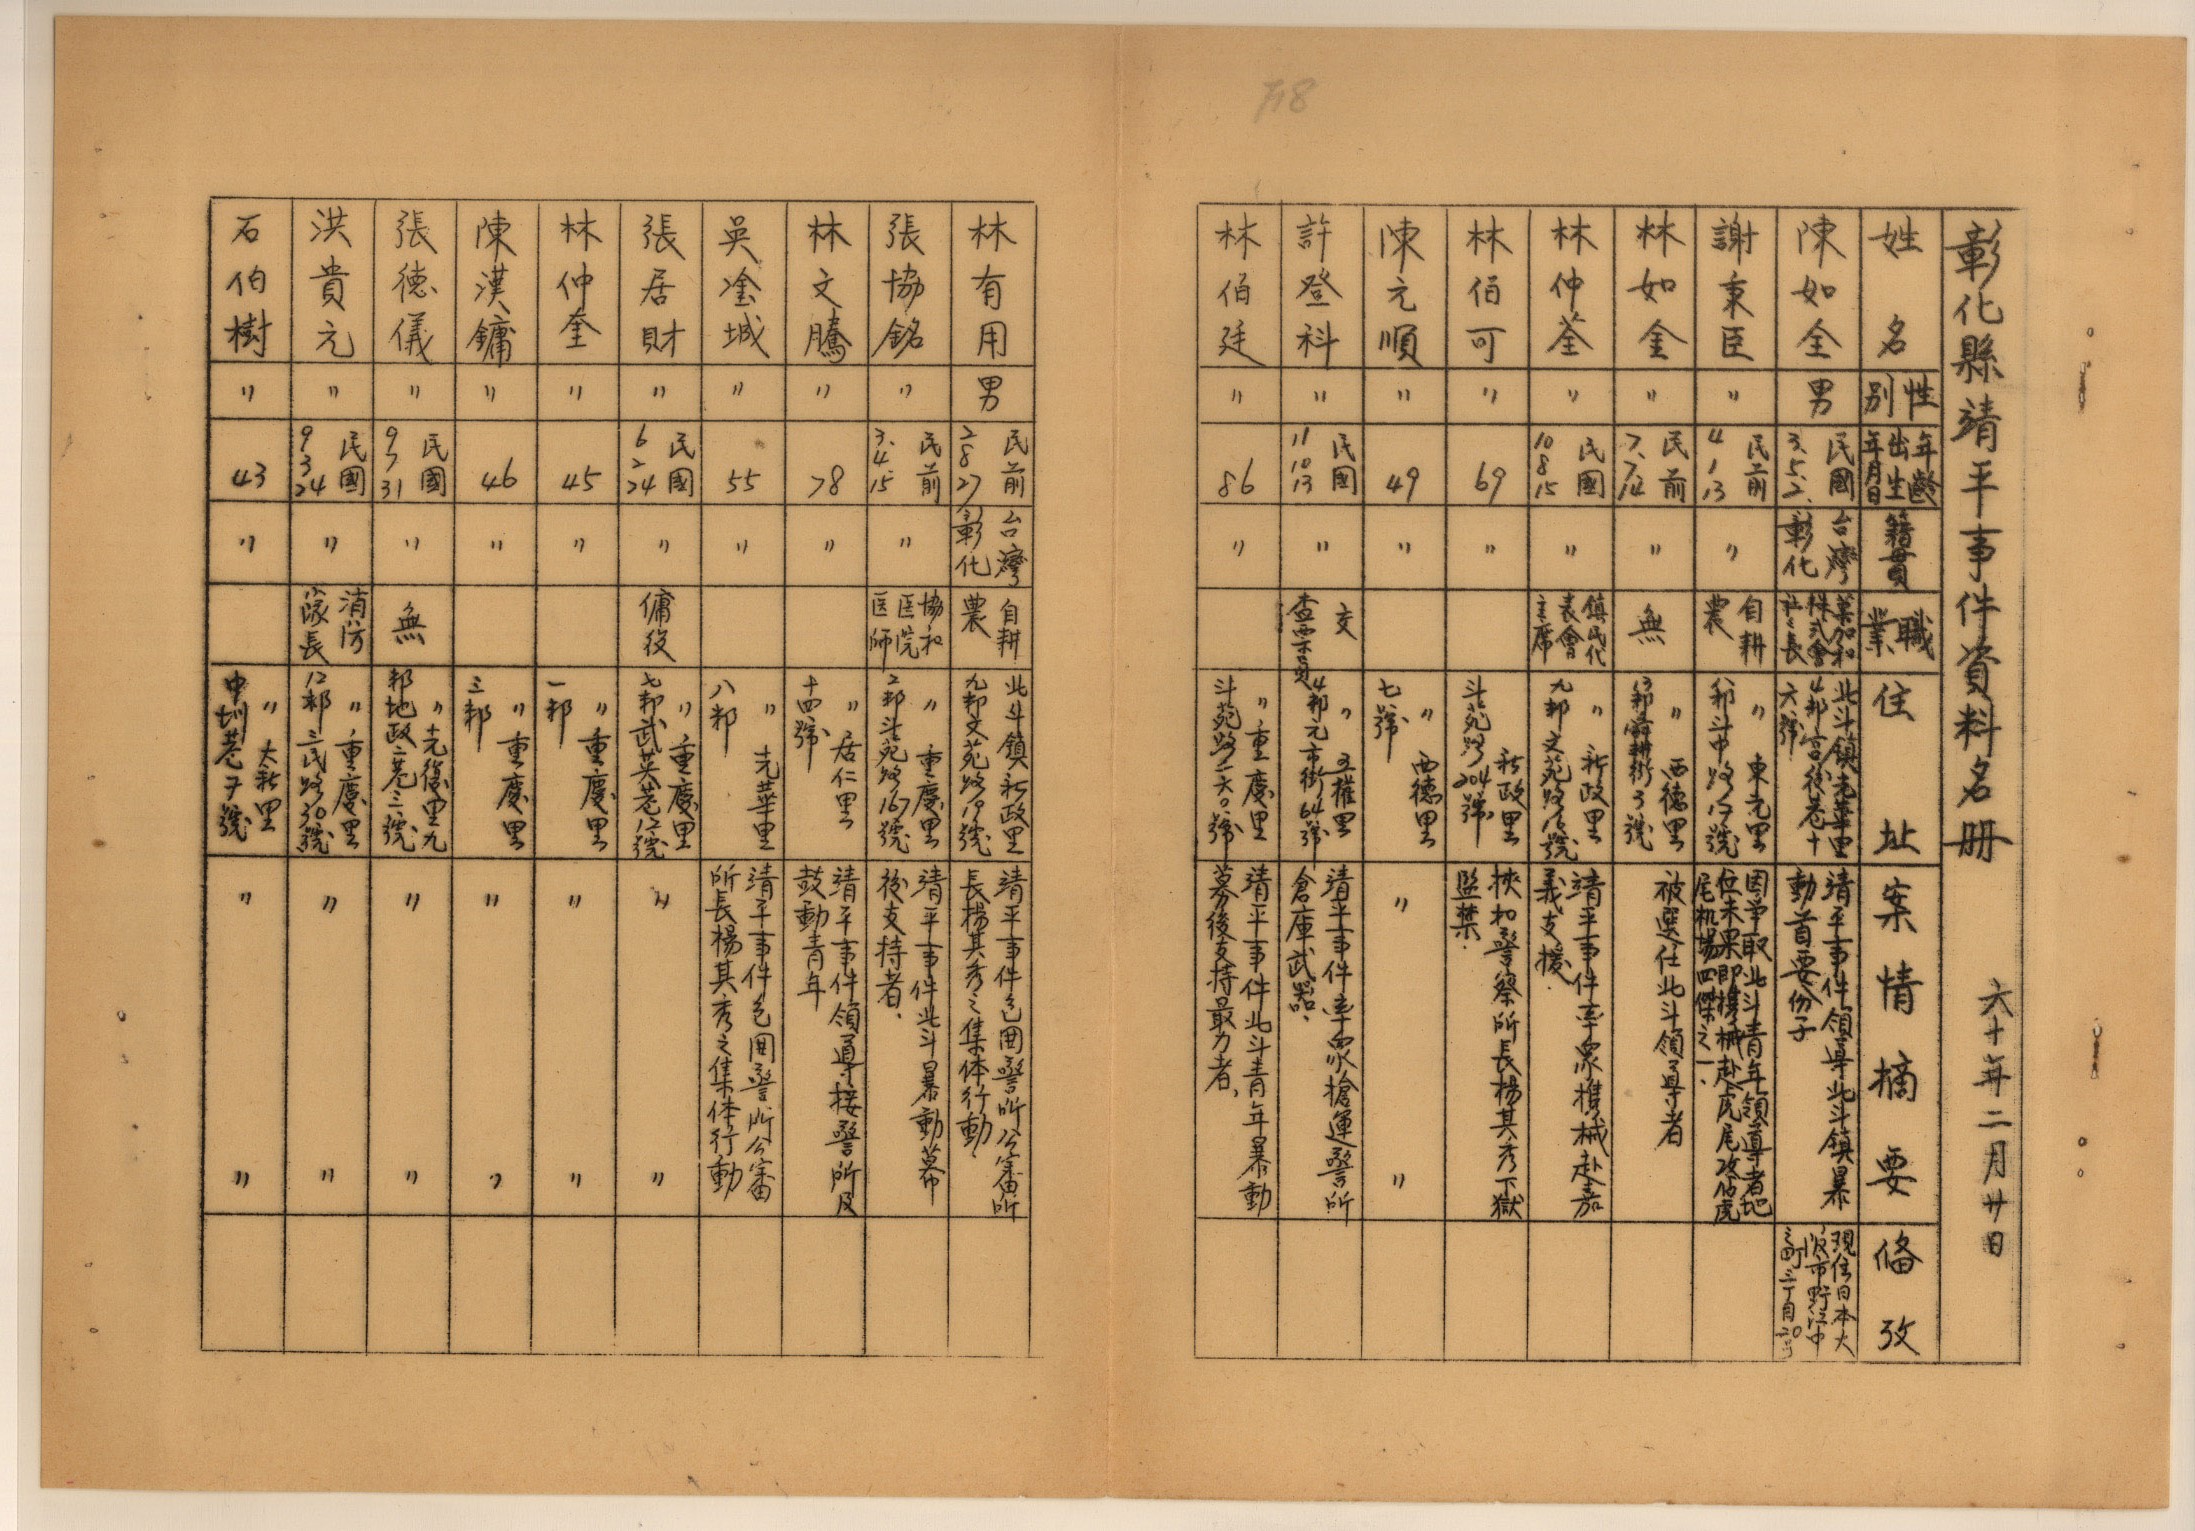 彰化縣靖平事件資料名冊
六十年二月廿日
姓名
性別
年齡
出生
年月日
籍貫
職業
住址
案情摘要
備攷
陳如全
男
民國
3.5.2.
台灣
彰化
北斗鎮光華里
4邦宮後巷十
六號
靖平事件領導北斗鎮暴
動首要份子
現住日本大
阪市野江中
之町三丁目20号
謝秉臣
〃
民前
4
1
13
〃
自耕
農
〃東光里
斗中路
因爭取北斗青年領導者地
位未果即携械赴虎尾攻佔虎
尾机場四傑之一.
林如金
〃
民前
7.
7.
14
〃
無
〃西德里
被選任北斗領導者
林仲荃
〃
民國
10
8
15
〃
鎮民代
表會
主席
〃新政里
九邦文苑路
靖平事件率眾携械赴嘉
義支援.
林伯可
〃
69
〃
〃新政里
斗苑路204號
挾扣警察所長楊其秀下獄
監禁.
陳元順
〃
49
〃
〃西德里
七號
〃〃
許登科
〃
民國
11
10
13
〃
查票員
〃五權里
4邦元市街64號
靖平事件率眾搶運警所
倉庫武器.
林伯廷
〃
86
〃
〃重慶里
斗苑路二六〇號
靖平事件北斗青年暴動
幕後支持最力者.
林有用
男
民前
2
8
27
台灣
彰化
自耕
農
北斗鎮新政里
九邦文苑路19號
靖平事件包囲警所公審所
長楊其秀之集体行動.
張協銘
〃
民前
3.
4
15
〃
協和
医院
医師
〃重慶里
2邦斗苑路167號
靖平事件北斗暴動幕
後支持者.
林文騰
〃
78
〃
〃居仁里
十四號
靖平事件領導接警所及
鼓動青年
吳淦城
〃
55
〃
〃光華里
八邦
靖平事件包囲警所公審
所長楊其秀之集体行動
張居財
〃
民國
6
2
24
〃
傭役
〃重慶里
七邦武英巷12號
〃〃
林仲奎
〃
45
〃
〃重慶里
一邦
〃〃
陳漢鏞
〃
46
〃
〃重慶里
三邦
〃〃
張德儀
〃
民國
9
7
31
〃
無
〃光復里九
邦地政巷三號
〃〃
洪貴元
〃
民國
9
3
24
〃
消防
隊長
〃重慶里
12邦三民路30號
〃〃
石伯樹
〃
43
〃
〃大新里
中圳巷7號
〃〃